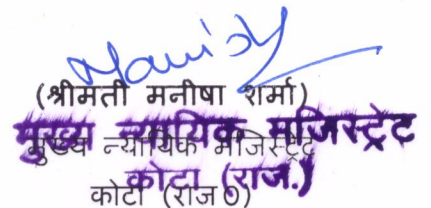 (श्रीमती मनीषा शर्मा)
मुख्य न्यायिक मजिस्ट्रेट
मुख्य न्यायिक मजिस्ट्रेट
कोटा (राज.)
कोटा (राज०)